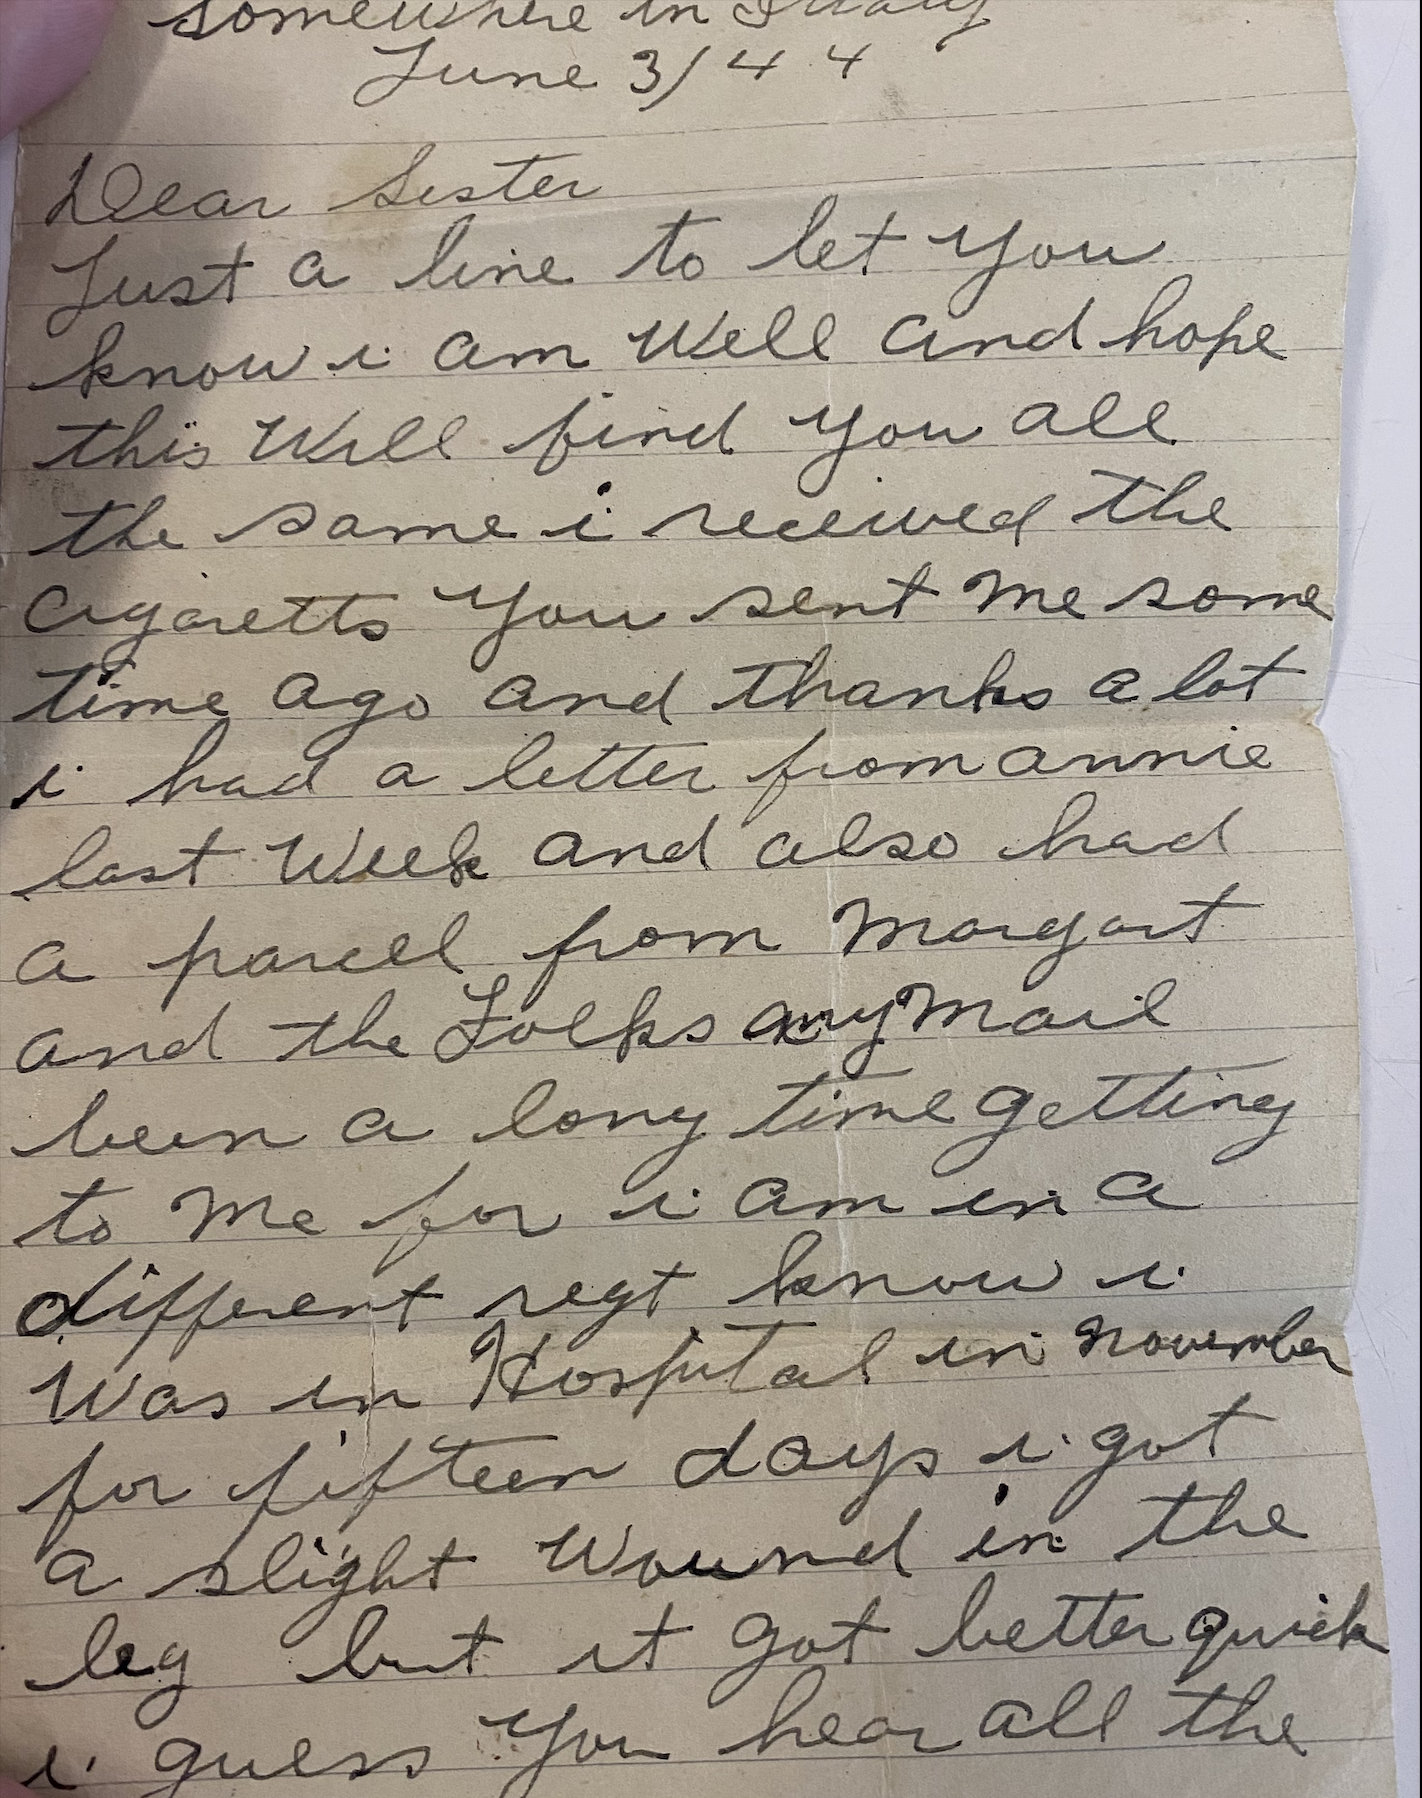 somewhere in Italy
June 3/44
Dear Sister
Just a line to let You
know i am Well and hope
this Will find You all
the same i received the
Cigaretts You sent Me some
time ago and thanks a lot
i had a letter from annie
last Week and also had
a parcell from Margart
and the Folks my Mail
been a long time getting
to Me for i am in a
different regt know i
Was in Hospital in november
for fifteen days i got
a slight Wound in the
leg but it got better quick
i guess You hear all the